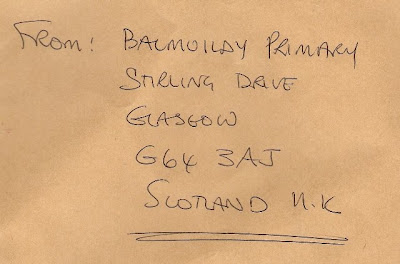 From: BALMUILDY PRIMARY
STIRLING DRIVE
GLASGOW
G64 3AJ
SCOTLAND U.K